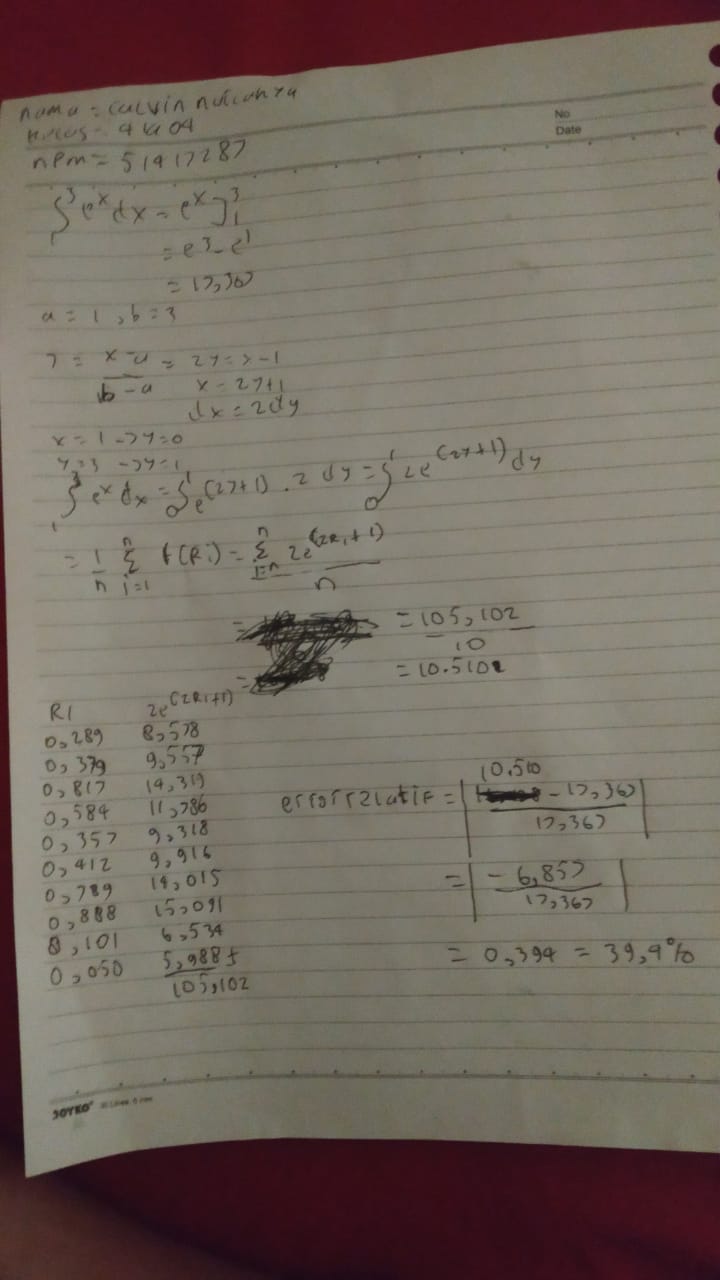 nama = calvin
No
Kelas = 4 ia 04
Date
npm = 51417287
∫₁³ eˣ dx = eˣ]₁³
= e³ - e¹
= 17,367
a = 1, b = 3
y = x-a / b-a = 2y = x-1
x = 2y+1
dx = 2dy
x = 1 -> y = 0
x = 3 -> y = 1
∫₁³ eˣ dx = ∫₀¹ e^(2y+1) . 2 dy = ∫₀¹ 2e^(2y+1) dy
= 1/n Σ_{i=1}^{n} f(Ri) = Σ_{i=n}^{n} 2e^(2Ri+1) / n
= 105,102 / 10
= 10.5102
RI 2e^(2Ri+1)
0,289 8,578
0,379 9,557
0,817 14,319
0,584 11,786
0,357 9,318
0,412 9,916
0,789 14,015
0,888 15,091
0,101 6,534
0,050 5,988 +
105,102
error relatif = | 10.510 - 17,367 / 17,367 |
= | -6,857 / 17,367 |
= 0,394 = 39,4%
JOYKO